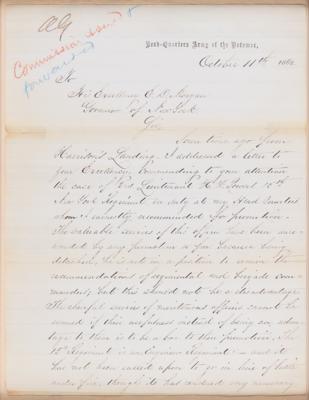 AG
Commission issued &
forwarded
Head-Quarters Army of the Potomac,
October 11th 1862
To
His Excellency E. D. Morgan
Governor of New York
Sir,
Some time ago from
Harrison's Landing I addressed a letter to
your Excellency, commending to your attention
the case of 2nd Lieutenant H. 15th
New York Regiment on duty at my Head Quarters
whom I earnestly recommended for promotion.
The valuable services of this officer have been
by any promotion as yet because being
detached, he is not in a position to receive the
recommendations of regimental and brigade com-
manders; but this should not be a disadvantage.
The cheerful services of meritorious officers cannot be
secured if their usefulness instead of being an advan-
tage to them is to be a bar to their promotion. The
15th Regiment is an Engineer Regiment - and it
has not been called upon to go in line of battle
under fire, though it has rendered very necessary